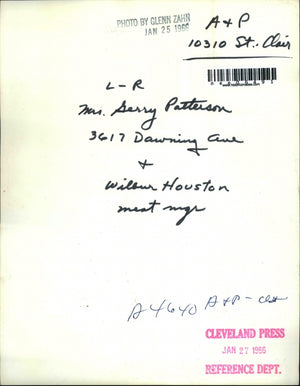 PHOTO BY GLENN ZAHN
JAN 25 1966
A & P
10310 St. Clair
L - R
Mrs. Gerry Patterson
3617 Dawning Ave
+
Wilbur Houston
meat mgr
A4640 A&P -
CLEVELAND PRESS
JAN 27 1966
REFERENCE DEPT.